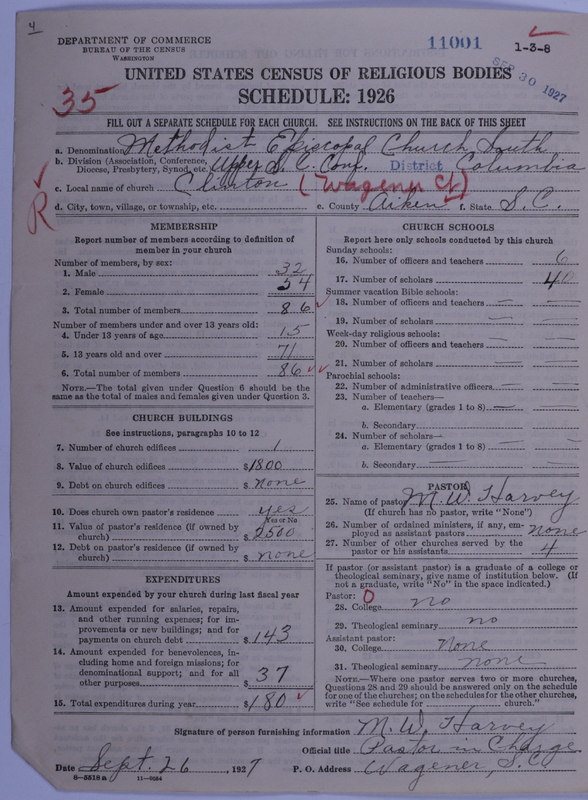 4
DEPARTMENT OF COMMERCE
BUREAU OF THE CENSUS
WASHINGTON
11001
1-3-8
SEP 30 1927
UNITED STATES CENSUS OF RELIGIOUS BODIES
SCHEDULE: 1926
35
FILL OUT A SEPARATE SCHEDULE FOR EACH CHURCH. SEE INSTRUCTIONS ON THE BACK OF THIS SHEET
a. Denomination Methodist Episcopal Church South
b. Division (Association, Conference, Diocese, Presbytery, Synod, etc. Upper S. C. Conf. District Columbia
c. Local name of church Clinton (Wagener Ct)
R
d. City, town, village, or township, etc. e. County Aiken f. State S. C.
MEMBERSHIP
Report number of members according to definition of
member in your church
Number of members, by sex:
1. Male 32
2. Female 54
3. Total number of members 86
Number of members under and over 13 years old:
4. Under 13 years of age 15
5. 13 years old and over 71
6. Total number of members 86
NOTE.—The total given under Question 6 should be the
same as the total of males and females given under Question 3.
CHURCH BUILDINGS
See instructions, paragraphs 10 to 12
7. Number of church edifices 1
8. Value of church edifices $1800
9. Debt on church edifices $ none
10. Does church own pastor's residence yes
Yes or No
11. Value of pastor's residence (if owned by
church) $ 2500
12. Debt on pastor's residence (if owned by
church) $ none
EXPENDITURES
Amount expended by your church during last fiscal year
13. Amount expended for salaries, repairs,
and other running expenses; for im-
provements or new buildings; and for
payments on church debt $ 143
14. Amount expended for benevolences, in-
cluding home and foreign missions; for
denominational support; and for all
other purposes $ 37
15. Total expenditures during year $ 180
CHURCH SCHOOLS
Report here only schools conducted by this church
Sunday schools:
16. Number of officers and teachers 6
17. Number of scholars
Summer vacation Bible schools:
18. Number of officers and teachers —
19. Number of scholars —
Week-day religious schools:
20. Number of officers and teachers —
21. Number of scholars —
Parochial schools:
22. Number of administrative officers —
23. Number of teachers—
a. Elementary (grades 1 to 8) —
b. Secondary
24. Number of scholars—
a. Elementary (grades 1 to 8) —
b. Secondary —
PASTOR
25. Name of pastor M. W. Harvey
(If church has no pastor, write "None")
26. Number of ordained ministers, if any, em-
ployed as assistant pastors none
27. Number of other churches served by the
pastor or his assistants 4
If pastor (or assistant pastor) is a graduate of a college or
theological seminary, give name of institution below. (If
not a graduate, write "No" in the space indicated.)
Pastor: 0
28. College no
29. Theological seminary no
Assistant pastor:
30. College None
31. Theological seminary none
NOTE.—Where one pastor serves two or more churches,
Questions 28 and 29 should be answered only on the schedule
for one of the churches; on the schedules for the other churches,
write "See schedule for church."
Signature of person furnishing information M. W. Harvey
Official title Pastor in Charge
Date Sept. 26, 1927 P. O. Address Wagener, S. C.
8—5518 a 11—9084